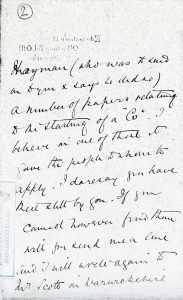 2
Hayman (who was to send
on to you & says he did so)
a number of papers relating
to the starting of a "Co". I
believe in one of those it
gave the people to whom to
apply. I daresay you have
these still by you. If you
cannot however find them
will you send me a line
and I will write again to
Mr Scott in Warwickshire